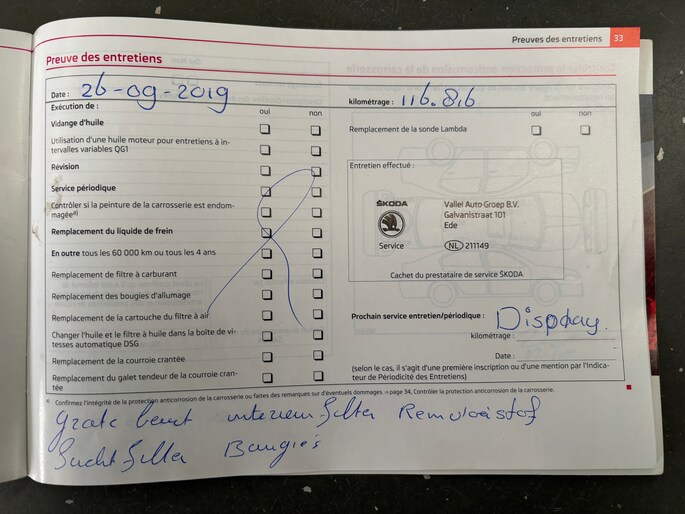 Preuves des entretiens 33
Preuve des entretiens
Date : 26-09-2019
kilométrage : 116.816
Exécution de :
oui non
Vidange d'huile
Utilisation d'une huile moteur pour entretiens à in-
tervalles variables QG1
Révision
Service périodique
Contrôler si la peinture de la carrosserie est endom-
magée a)
Remplacement du liquide de frein
En outre tous les 60 000 km ou tous les 4 ans
Remplacement de filtre à carburant
Remplacement des bougies d'allumage
Remplacement de la cartouche du filtre à air
Changer l'huile et le filtre à huile dans la boîte de vi-
tesses automatique DSG
Remplacement de la courroie crantée
Remplacement du galet tendeur de la courroie cran-
tée
oui non
Remplacement de la sonde Lambda
Entretien effectué :
ŠKODA
Service
Vallei Auto Groep B.V.
Galvanistraat 101
Ede
NL 211149
Cachet du prestataire de service ŠKODA
Prochain service entretien/périodique :
Display
kilométrage :
Date :
(selon le cas, il s'agit d'une première inscription ou d'une mention par l'Indica-
teur de Périodicité des Entretiens)
a) Confirmez l'intégrité de la protection anticorrosion de la carrosserie ou faites des remarques sur d'éventuels dommages ⇒ page 34, Contrôler la protection anticorrosion de la carrosserie.
grote beurt interieurfilter Remvloeistof
Luchtfilter Bougie's